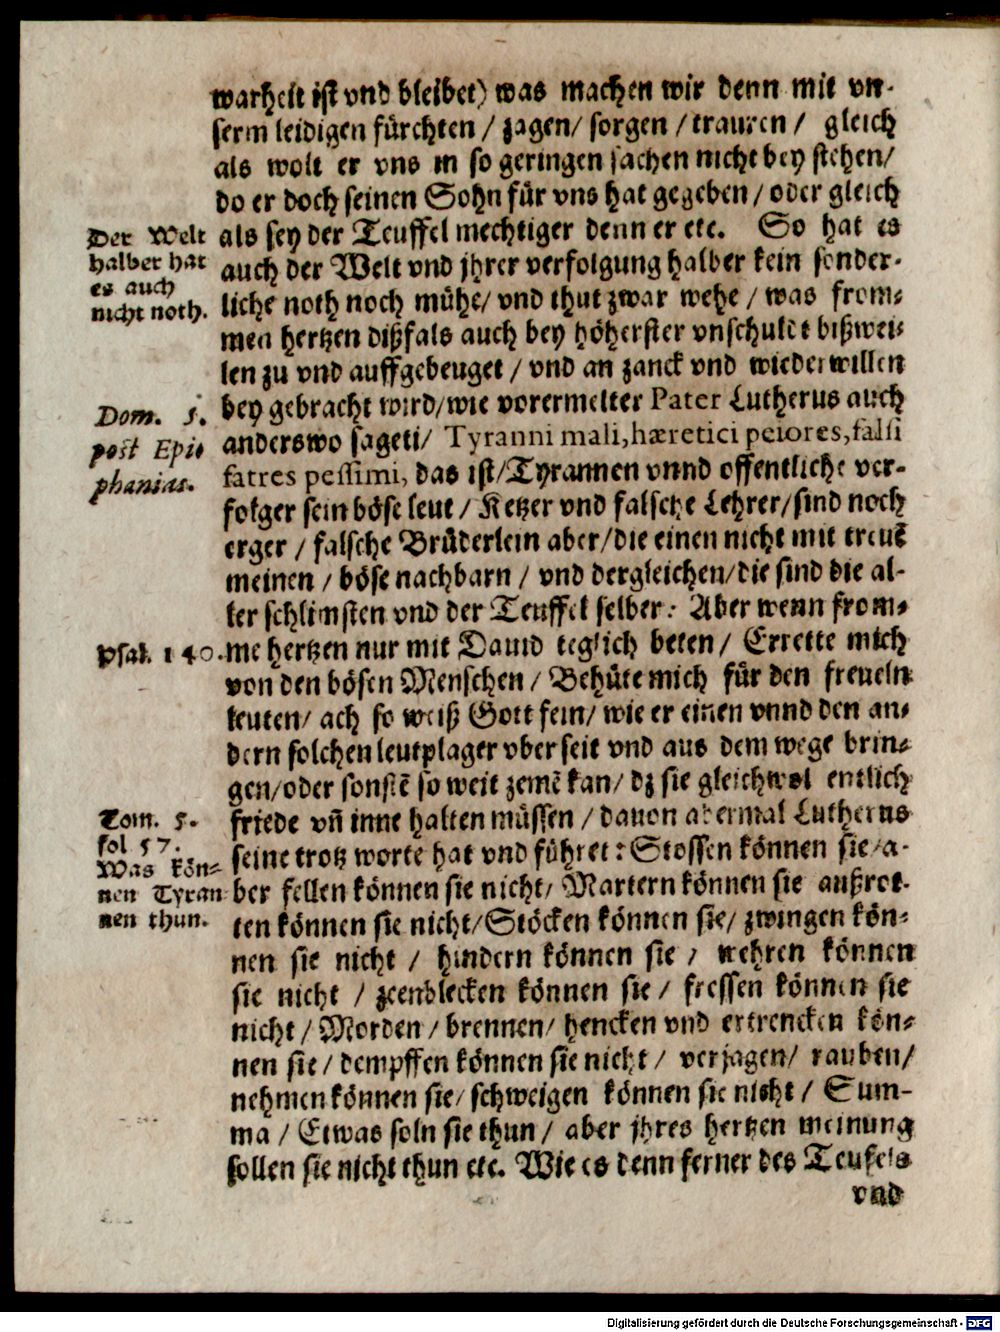 warheit ist vnd bleibet) was machen wir denn mit vn-
serm leidigen fürchten / zagen/ sorgen / trauren / gleich
als wolt er vns in so geringen sachen nicht bey stehen/
do er doch seinen Sohn für vns hat gegeben / oder gleich
als sey der Teuffel mechtiger denn er etc. So hat es
auch der Welt vnd jhrer verfolgung halber kein sonder-
liche noth noch mühe/ vnd thut zwar wehe / was from-
men hertzen dißfals auch bey höherster vnschuldt bißwei-
len zu vnd auffgebeuget / vnd an zanck vnd wiederwillen
bey gebracht wird/wie vorermelter Pater Lutherus auch
anderswo saget/ Tyranni mali, hæretici peiores, falsi
fatres pessimi, das ist/Tyrannen vnnd offentliche ver-
folger sein böse leut / Ketzer vnd falsche Lehrer/sind noch
erger / falsche Brüderlein aber/die einen nicht mit treuẽ
meinen / böse nachbarn / vnd dergleichen/die sind die al-
ler schlimsten vnd der Teuffel selber: Aber wenn from-
me hertzen nur mit Dauid teglich beten / Errette mich
von den bösen Menschen / Behüte mich für den freueln
leuten/ ach so weiß Gott fein/ wie er einen vnnd den an-
dern solchen leutplager vber seit vnd aus dem wege brin-
gen/oder sonstẽ so weit zemẽ kan/ dz sie gleichwol entlich
friede vñ inne halten müssen / dauon abermal Lutherus
seine trotz worte hat vnd führet: Stossen können sie/a-
ber fellen können sie nicht/ Martern können sie außrot-
ten können sie nicht/Stöcken können sie/ zwingen kön-
nen sie nicht / hindern können sie / wehren können
sie nicht / zeenblecken können sie / fressen können sie
nicht / Morden / brennen/ hencken vnd ertrencken kön-
nen sie / dempffen können sie nicht / verjagen/ rauben/
nehmen können sie/ schweigen können sie nicht / Sum-
ma / Etwas soln sie thun / aber jhres hertzen meinung
sollen sie nicht thun etc. Wie es denn ferner des Teufels
vnd
Der Welt
halber hat
es auch
nicht noth.
Dom. 5.
post Epi-
phanias.
Psal. 140.
Tom. 5.
fol 57.
Was kön-
nen Tyran
nen thun.
Digitalisierung gefördert durch die Deutsche Forschungsgemeinschaft - DFG